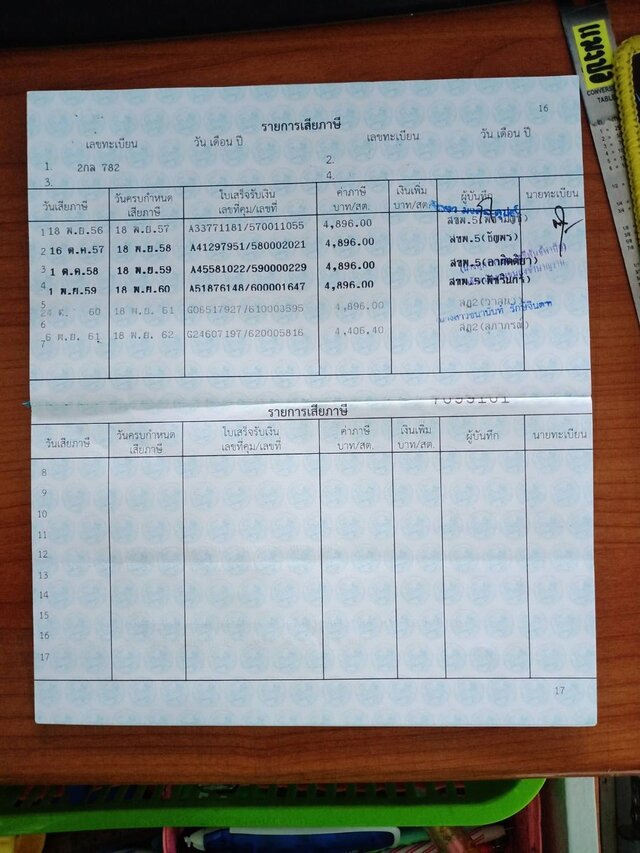 16
รายการเสียภาษี
เลขทะเบียน วัน เดือน ปี เลขทะเบียน วัน เดือน ปี
1. 2กล 782 2.
3. 4.
วันเสียภาษี วันครบกำหนดเสียภาษี ใบเสร็จรับเงิน เลขที่คุม/เลขที่ ค่าภาษี บาท/สต. เงินเพิ่ม บาท/สต. ผู้บันทึก นายทะเบียน
1 18 พ.ย.56 18 พ.ย.57 A33771181/570011055 4,896.00 สขพ.5
2 16 ต.ค.57 18 พ.ย.58 A41297951/580002021 4,896.00 สขพ.5(ธัญพร)
3 1 ต.ค.58 18 พ.ย.59 A45581022/590000229 4,896.00 สขพ.5
4 1 พ.ย.59 18 พ.ย.60 A51876148/600001647 4,896.00 สขพ.5
5 24 60 18 พ.ย. 61 G06517927/610003595 4,896.00
6 6 พ.ย. 61 18 พ.ย. 62 G24607197/620005816 4,406.40
7
รายการเสียภาษี
วันเสียภาษี วันครบกำหนดเสียภาษี ใบเสร็จรับเงิน เลขที่คุม/เลขที่ ค่าภาษี บาท/สต. เงินเพิ่ม บาท/สต. ผู้บันทึก นายทะเบียน
8
9
10
11
12
13
14
15
16
17
17
CONVERS
TABL